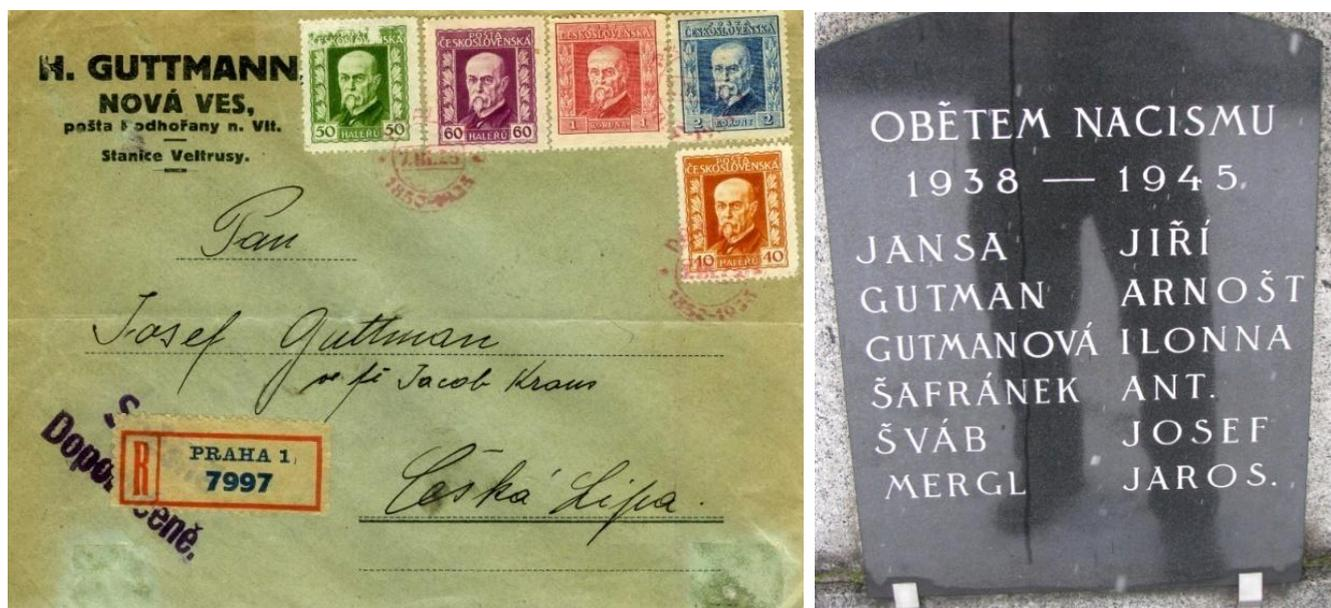 H. GUTTMANN
NOVÁ VES,
pošta Podhořany n. Vlt.
Stanice Veltrusy.
ČESKOSLOVENSKÁ
50 HALÉŘŮ 50
POŠTA
ČESKOSLOVENSKÁ
60 HALÉŘŮ 60
POŠTA
ČESKOSLOVENSKÁ
1 KORUNA 1
ČESKOSLOVENSKÁ
2 KORUNY 2
POŠTA
ČESKOSLOVENSKÁ
40 HALÉŘŮ 40
7.III.25
Pan
Josef Guttman
ve fě Jacob Kraus
Česká Lípa.
Doporučeně.
R PRAHA 1
7997
OBĚTEM NACISMU
1938 — 1945.
JANSA JIŘÍ
GUTMAN ARNOŠT
GUTMANOVÁ ILONNA
ŠAFRÁNEK ANT.
ŠVÁB JOSEF
MERGL JAROS.